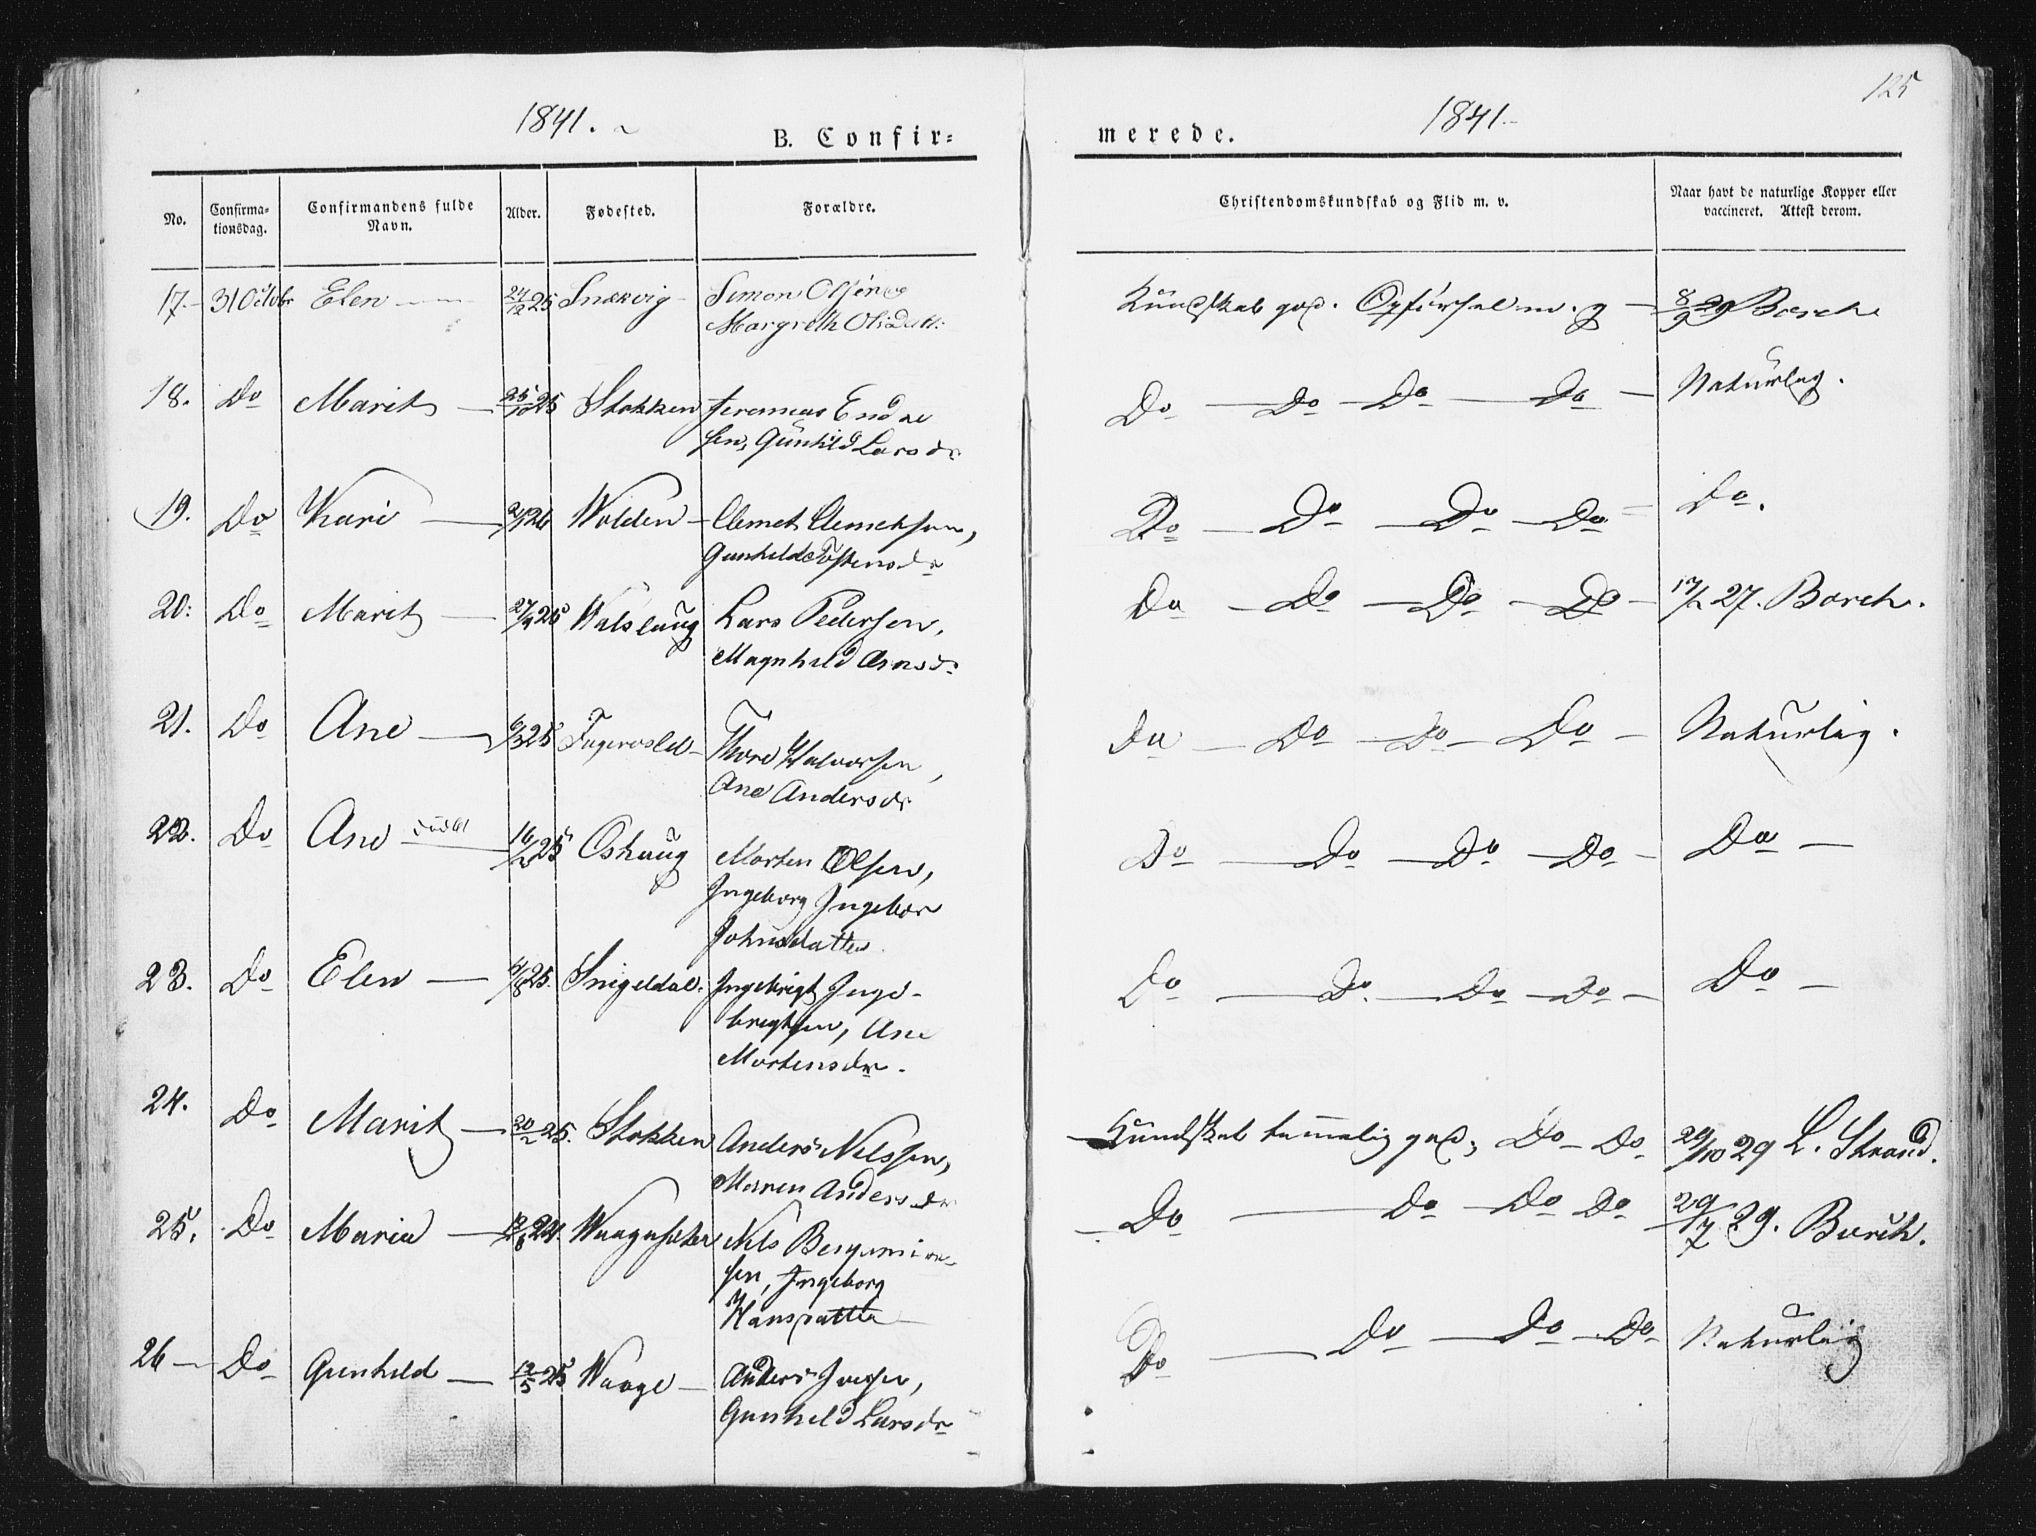 125
1841.
B. Confir=
merede.
1841
No.
Confirma=
tionsdag.
Confirmandens fulde
Navn.
Alder.
Fødested.
Forældre.
Christendomskundskab og Flid m. v.
Naar havt de naturlige Kopper eller
vaccineret. Attest derom.
17 31 Octobr Elen 24/12 25 Snekvig Simon Olsen
Margreth Olsdatt:
Kundskab god. Opførsel m. g 8/9 29 Borch
18. Do Marit 25/10 25 Stokken Jeremias Endre
sen, Gunhild Larsdr
Do Do Do Do Naturlig.
19. Do Kari 26 Wolden Clemet Clemetsen,
Gunhild Tostensdr
Do Do Do Do Do.
20: Do Marit 27/4 25 Walslaug Lars Pedersen,
Magnhild Arnsdr
Do Do Do Do 17/2 27. Borch.
21. Do Ane 6/3 25 Fagervold Thore Halvorsen,
Ane Andersdr
Do Do Do Do Naturlig.
22. Do Ane 16/2 25 Oshaug Morten Olsen,
Ingeborg Ingebor
Johnsdatter
Do Do Do Do Do
23. Do Elen 4/8 25. Snigeldal. Ingebrigt Inge-
brigtsen, Ane
Mortensdr.
Do Do. Do Do Do
24. Do Marit 20/2 25. Stokken Anders Nilssen,
Maren Andersdr
Kundskab temmelig god, Do Do 29/10 29 L. Strand.
25. Do Maria 12/8 24. Waagasæter Nils Benjamin-
sen, Ingeborg
Hansdatter
Do Do Do Do 29/7 29. Borch.
26 Do Gunhild 12/5 25 Waage Anders Iversen,
Gunhild Larsdr
Do Do Do Do Naturlig